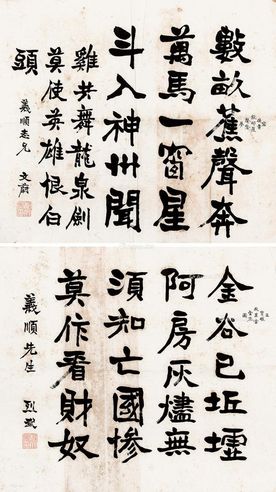 數畝蕉聲奔
萬馬一窗星
斗入神州聞
雞共舞龍泉劍
莫使英雄恨白
頭
義順志兄 文蔚
金谷已坵墟
阿房灰燼無
須知亡國慘
莫作看財奴
義順先生 烈武